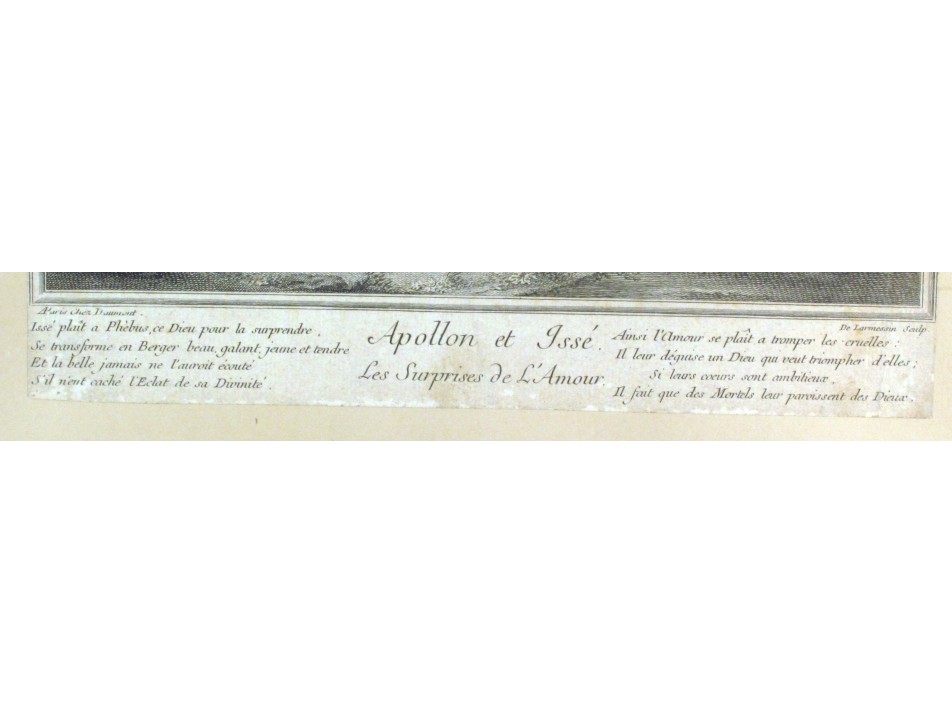 A Paris Chez Daumont.
De Larmessin Sculp.
Issé plaît a Phébus, ce Dieu pour la surprendre.
Se transforme en Berger beau, galant, jeune et tendre
Et la belle jamais ne l'auroit écouté
S'il n'eut caché l'Eclat de sa Divinité.
Apollon et Issé.
Les Surprises de L'Amour.
Ainsi l'Amour se plaît a tromper les cruelles:
Il leur déguise un Dieu qui veut triompher d'elles;
Si leurs cœurs sont ambitieux.
Il fait que des Mortels leur paroissent des Dieux.